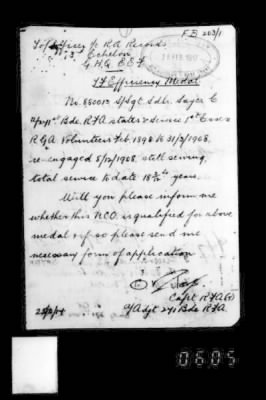 FB 203/1
To Officer i/c R A Records
3. Echelon
G.H.Q. E E F
T F Efficiency Medal
No. 850013 S/Sgt Sdlr. Sayer C
Bde. R F A states Service 1st Essex
R G A Volunteers Feb. 1898 to 31/3/1908,
re-engaged 5/12/1908, still serving,
total service to date years.
Will you please inform me
whether this N.C.O. is qualified for above
medal & if so please send me
necessary form of application
Capt R F A (T)
A/Adjt 271 Bde R F A.
0605